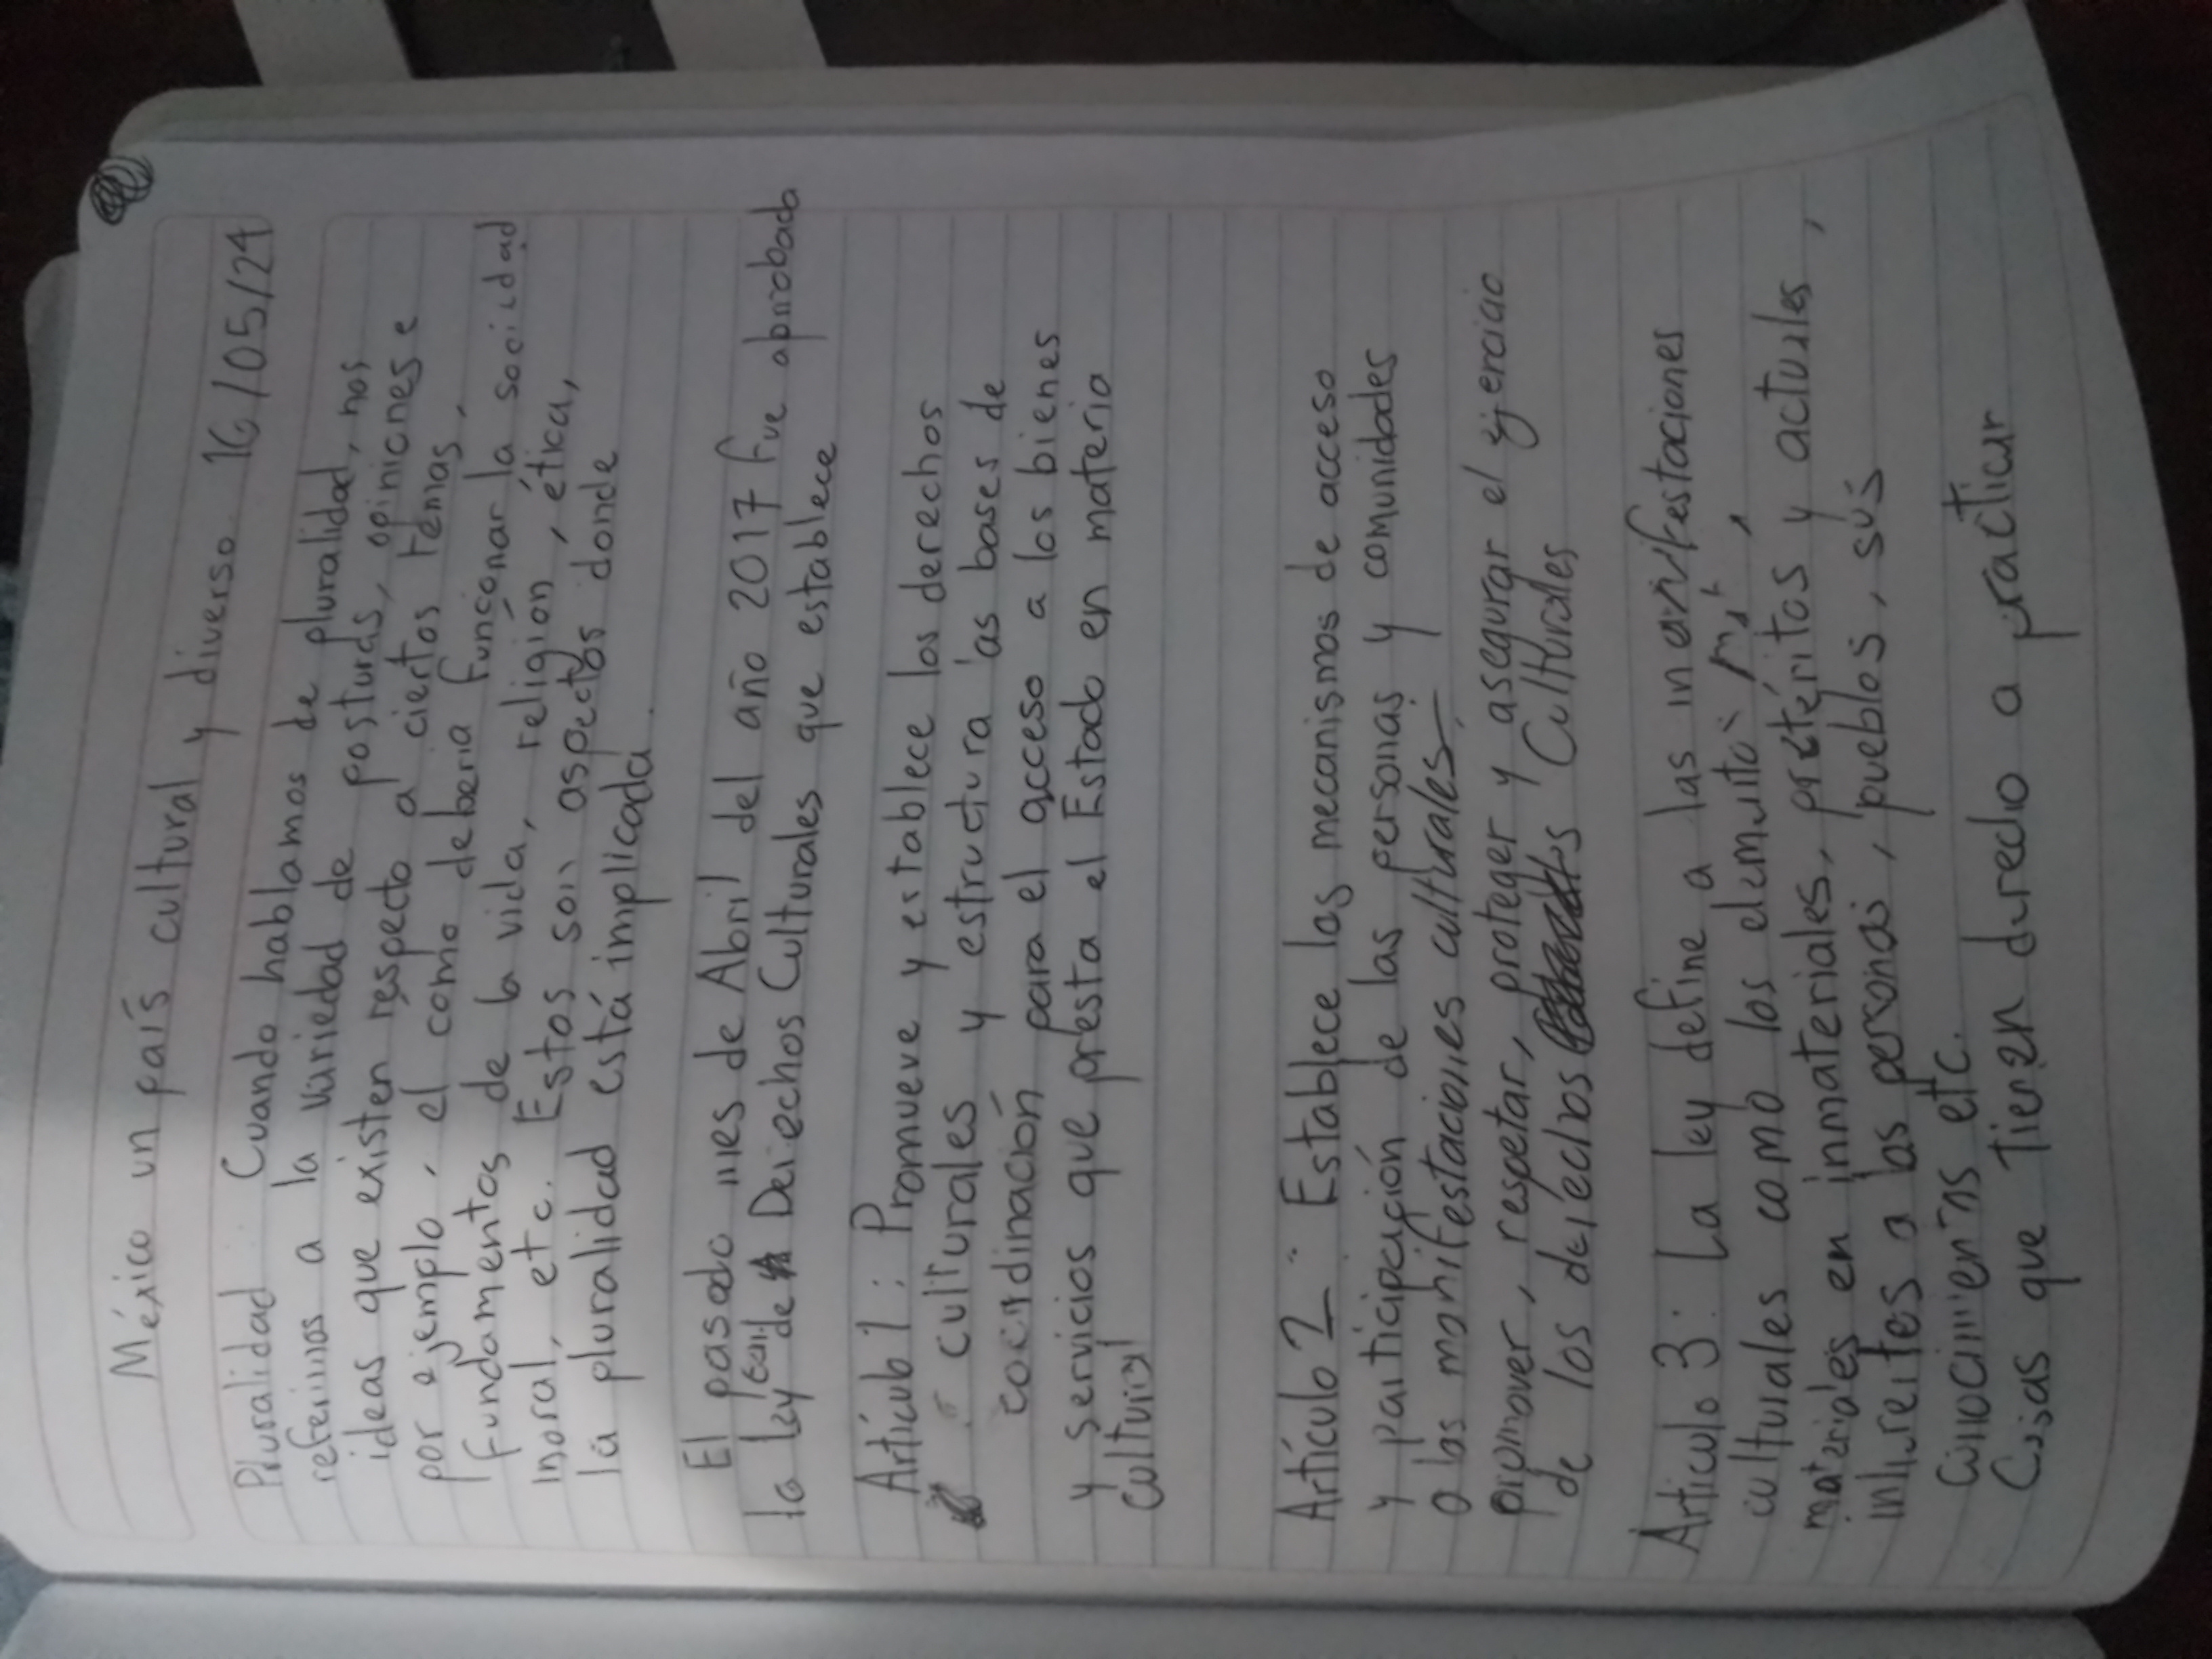 México un país cultural y diverso. 16/05/24
Pluralidad: Cuando hablamos de pluralidad, nos
referimos a la variedad de posturas, opiniones e
ideas que existen respecto a ciertos temas,
por ejemplo, el como debería funcionar la socidad
fundamentos de la vida, religión, ética,
moral, etc. Estos son aspectos donde
la pluralidad está implicada.
El pasado mes de Abril del año 2017 fue aprobada
la ley de Derechos Culturales que establece
Artículo 1: Promueve y establece los derechos
culturales y estructura las bases de
coordinación para el acceso a los bienes
y servicios que presta el Estado en materia
cultural
Artículo 2: Establece los mecanismos de acceso
y participación de las personas y comunidades
a las manifestaciones culturales
promover, respetar, proteger y asegurar el ejercicio
de los derechos Culturales
Artículo 3: La ley define a las manifestaciones
culturales como los elementos
materiales en inmateriales, pretéritos y actuales,
inherentes a las personas, pueblos, sus
conocimientos etc.
Cosas que tienen derecho a practicar